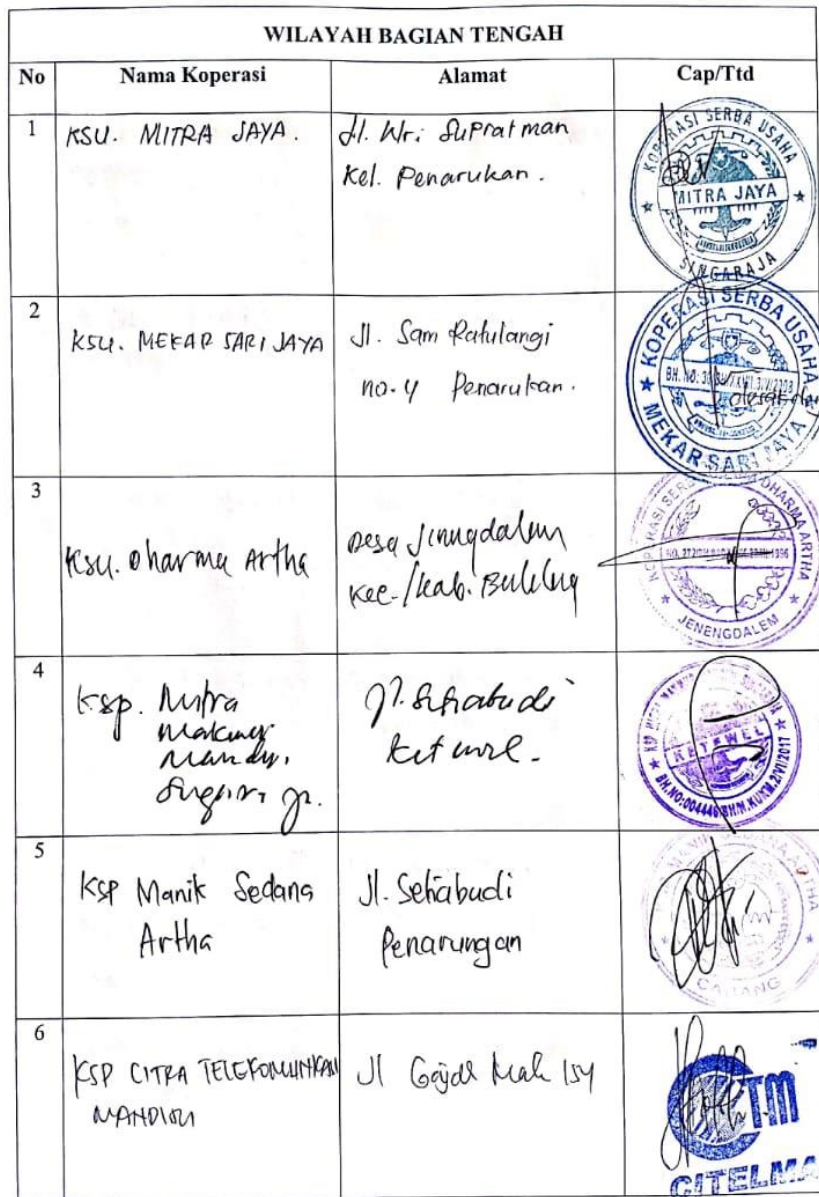 WILAYAH BAGIAN TENGAH
No Nama Koperasi Alamat Cap/Ttd
1 KSU. MITRA JAYA. Jl. Wr. Supratman
Kel. Penarukan.
KOPERASI SERBA USAHA
MITRA JAYA
SINGARAJA
2 KSU. MEKAR SARI JAYA Jl. Sam Ratulangi
no. 4 Penarukan.
KOPERASI SERBA USAHA
MEKAR SARI JAYA
3 KSU. Dharma Artha Desa Jinengdalem
Kec./Kab. Buleleng
DHARMA ARTHA
JENENGDALEM
4 Ksp. Mitra Jl. Setiabudi
Makmur
Mandiri
KETEWEL
BH.NO:004446/BH/M.KUKM.2/VI/2017
5 KSP Manik Sedana Jl. Setiabudi
Artha Penarungan
CABANG
6 KSP CITRA TELEKOMUNIKASI Jl Gajah Mada 154
MANDIRI
CTM
CITELMA